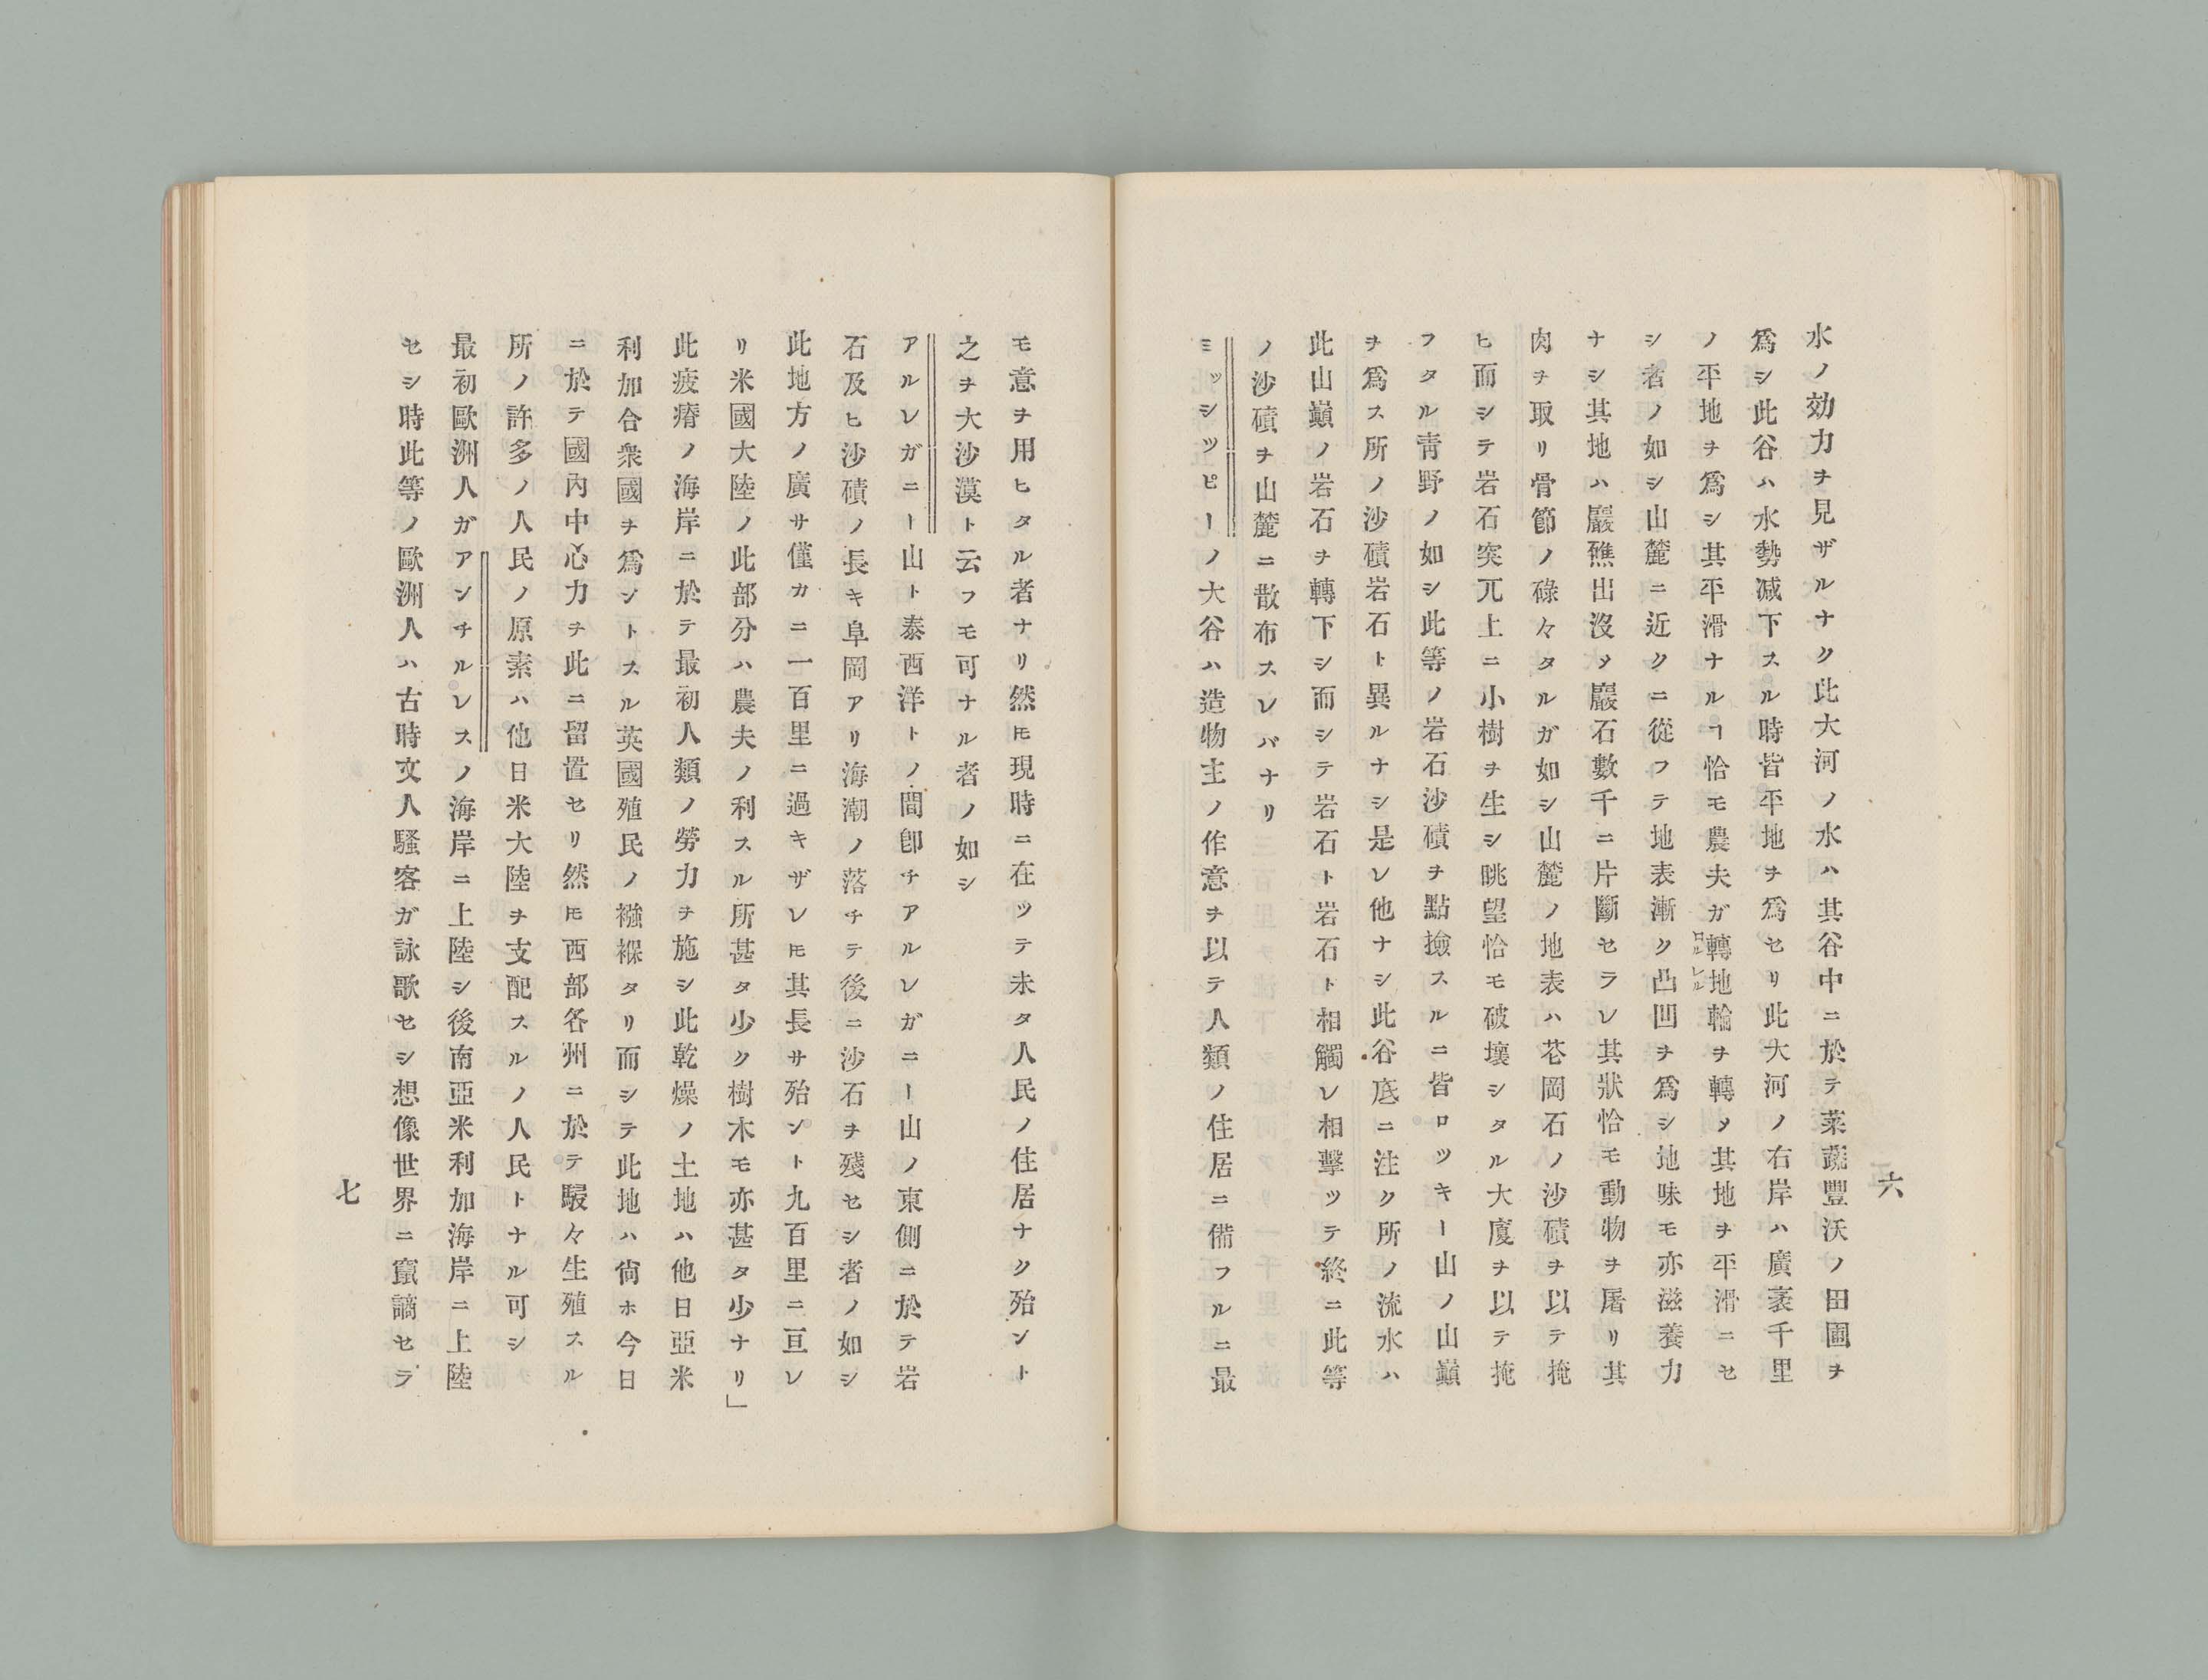 水ノ効力ヲ見ザルナク此大河ノ水ハ其谷中ニ於テ菜蔬豐沃ノ田圃ヲ
爲シ此谷ハ水勢減下スル時皆平地ヲ爲セリ此大河ノ右岸ハ廣袤千里
ノ平地ヲ爲シ其平滑ナルヿ恰モ農夫ガ轉地輪ヲ轉メ其地ヲ平滑ニセ
ロルレル
シ者ノ如シ山麓ニ近クニ從フテ地表漸ク凸凹ヲ爲シ地味モ亦滋養力
ナシ其地ハ巖礁出沒メ巖石數千ニ片斷セラレ其狀恰モ動物ヲ屠リ其
肉ヲ取リ骨節ノ碌々タルガ如シ山麓ノ地表ハ花岡石ノ沙磧ヲ以テ掩
ヒ而シテ岩石突兀上ニ小樹ヲ生シ眺望恰モ破壞シタル大廈ヲ以テ掩
フタル靑野ノ如シ此等ノ岩石沙磧ヲ點撿スルニ皆ロツキー山ノ山巓
ヲ爲ス所ノ沙磧岩石ト異ルナシ是レ他ナシ此谷底ニ注ク所ノ流水ハ
此山巓ノ岩石ヲ轉下シ而シテ岩石ト岩石ト相觸レ相擊ツテ終ニ此等
ノ沙磧ヲ山麓ニ散布スレバナリ
ミッシツピーノ大谷ハ造物主ノ作意ヲ以テ人類ノ住居ニ備フルニ最
六
モ意ヲ用ヒタル者ナリ然𪜈現時ニ在ツテ未タ人民ノ住居ナク殆ント
之ヲ大沙漠ト云フモ可ナル者ノ如シ
アルレガニー山ト泰西洋トノ間卽チアルレガニー山ノ東側ニ於テ岩
石及ヒ沙磧ノ長キ阜岡アリ海潮ノ落チテ後ニ沙石ヲ殘セシ者ノ如シ
此地方ノ廣サ僅カニ一百里ニ過キザレ𪜈其長サ殆ント九百里ニ亘レ
リ米國大陸ノ此部分ハ農夫ノ利スル所甚タ少ク樹木モ亦甚タ少ナリ」
此疲瘠ノ海岸ニ於テ最初人類ノ勞力ヲ施シ此乾燥ノ土地ハ他日亞米
利加合衆國ヲ爲ントスル英國殖民ノ襁褓タリ而シテ此地ハ尙ホ今日
ニ於テ國內中心力ヲ此ニ留置セリ然𪜈西部各州ニ於テ駸々生殖スル
所ノ許多ノ人民ノ原素ハ他日米大陸ヲ支配スルノ人民トナル可シ
最初歐洲人ガアンチルレスノ海岸ニ上陸シ後南亞米利加海岸ニ上陸
セシ時此等ノ歐洲人ハ古時文人騷客ガ詠歌セシ想像世界ニ竄謫セラ
七